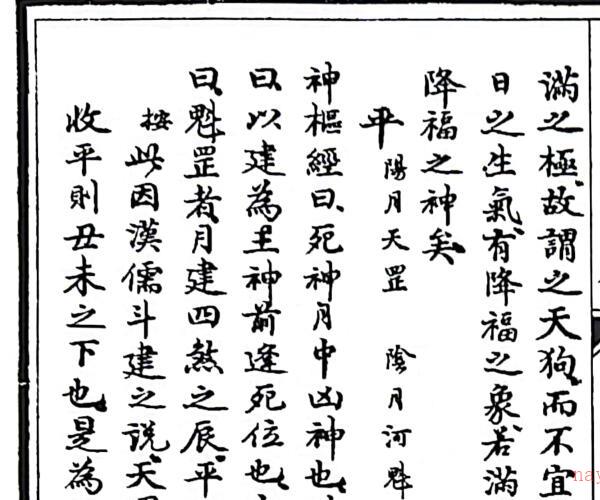 滿之極故謂之天狗而不宜
日之生氣有降福之象若滿
降福之神矣
平 陽月天罡 陰月河魁
神樞經曰死神月中凶神也
曰以建為王神前逢死位也
曰魁罡者月建四煞之辰平
按此因漢儒斗建之說天
收平則丑未之下也是為